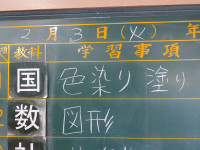 2月3日(火) 年
教科 学習事項
国 色染り塗り
数 図形